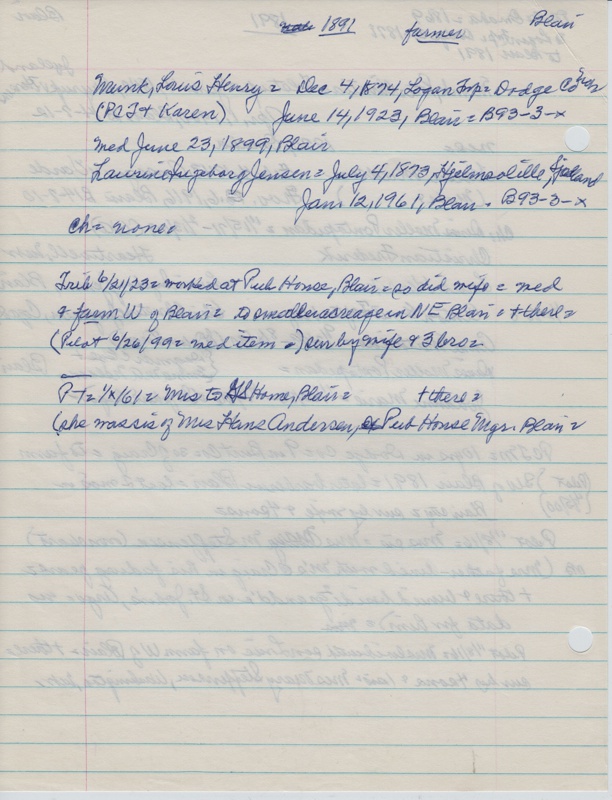 1891 farmer Blair
Munk, Louis Henry = Dec 4, 1874, Logan Twp = Dodge Co
(PCJ & Karen) June 14, 1923, Blair = B93-3-x
med June 23, 1899, Blair
Laurine Ingeborg Jensen = July 4, 1873, Hjelmsolille, Sjaeland
Jan 12, 1961, Blair = B93-3-x
ch = none =
Trib 6/21/23 = worked at Pub House, Blair = so did wife = med
& farm W of Blair = to smaller acreage in NE Blair = + there =
(Pilot 6/26/99 = med item =) sur by wife & 3 bro =
P-T = 1/x/61 = Mrs to Home, Blair = + there =
(she was sis of Mrs Hans Andersen, Pub House Mgr. Blair =